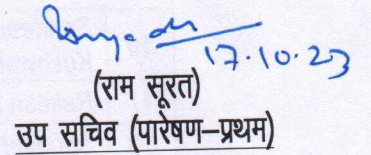 17.10.23
(राम सूरत)
उप सचिव (पारेषण–प्रथम)